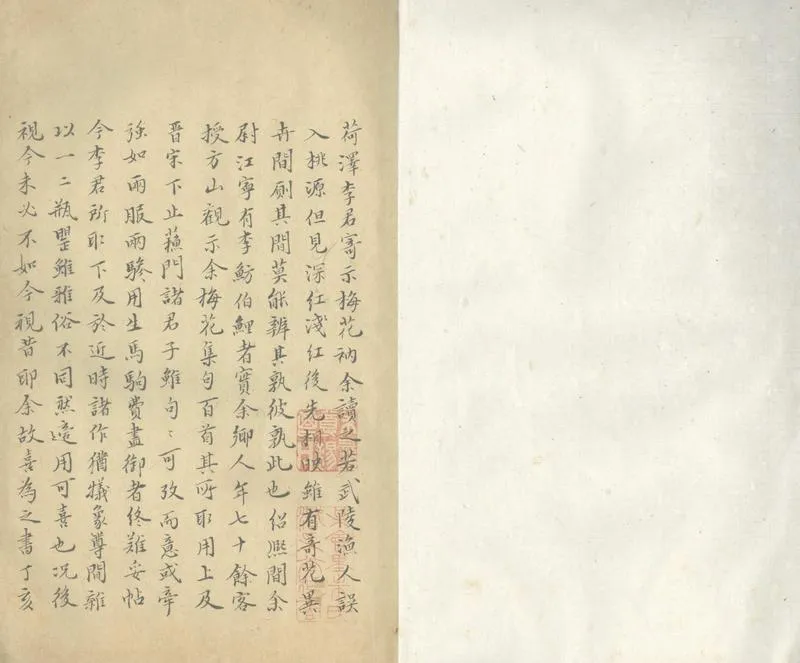 荷澤李君寄示梅花衲余讀之若武陵漁人誤
入桃源但見深紅淺紅後先相映雖有奇花異
卉間厠其間莫能辨其孰彼孰此也紹熙間余
尉江寧有李魴伯鯉者實余鄉人年七十餘客
授方山觀示余梅花集句百首其所取用上及
晉宋下止蘓門諸君子雖句〻可攷而意或牽
强如兩服兩驂用生馬駒費盡御者終難妥帖
今李君所取下及於近時諸作猶犧象尊間雜
以一二瓶罌雖雅俗不同然適用可喜也況後
視今未必不如今視昔耶余故喜為之書丁亥